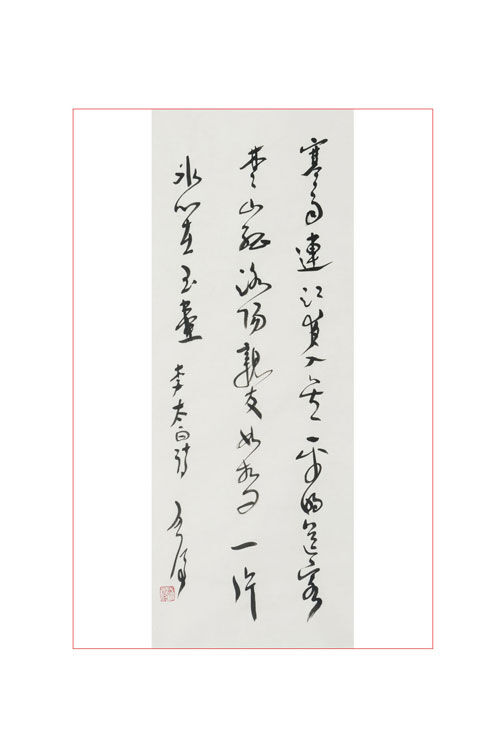 寒雨連江夜入吴平明送客
楚山孤洛陽親友如相问一片
冰心在玉壺 李太白詩